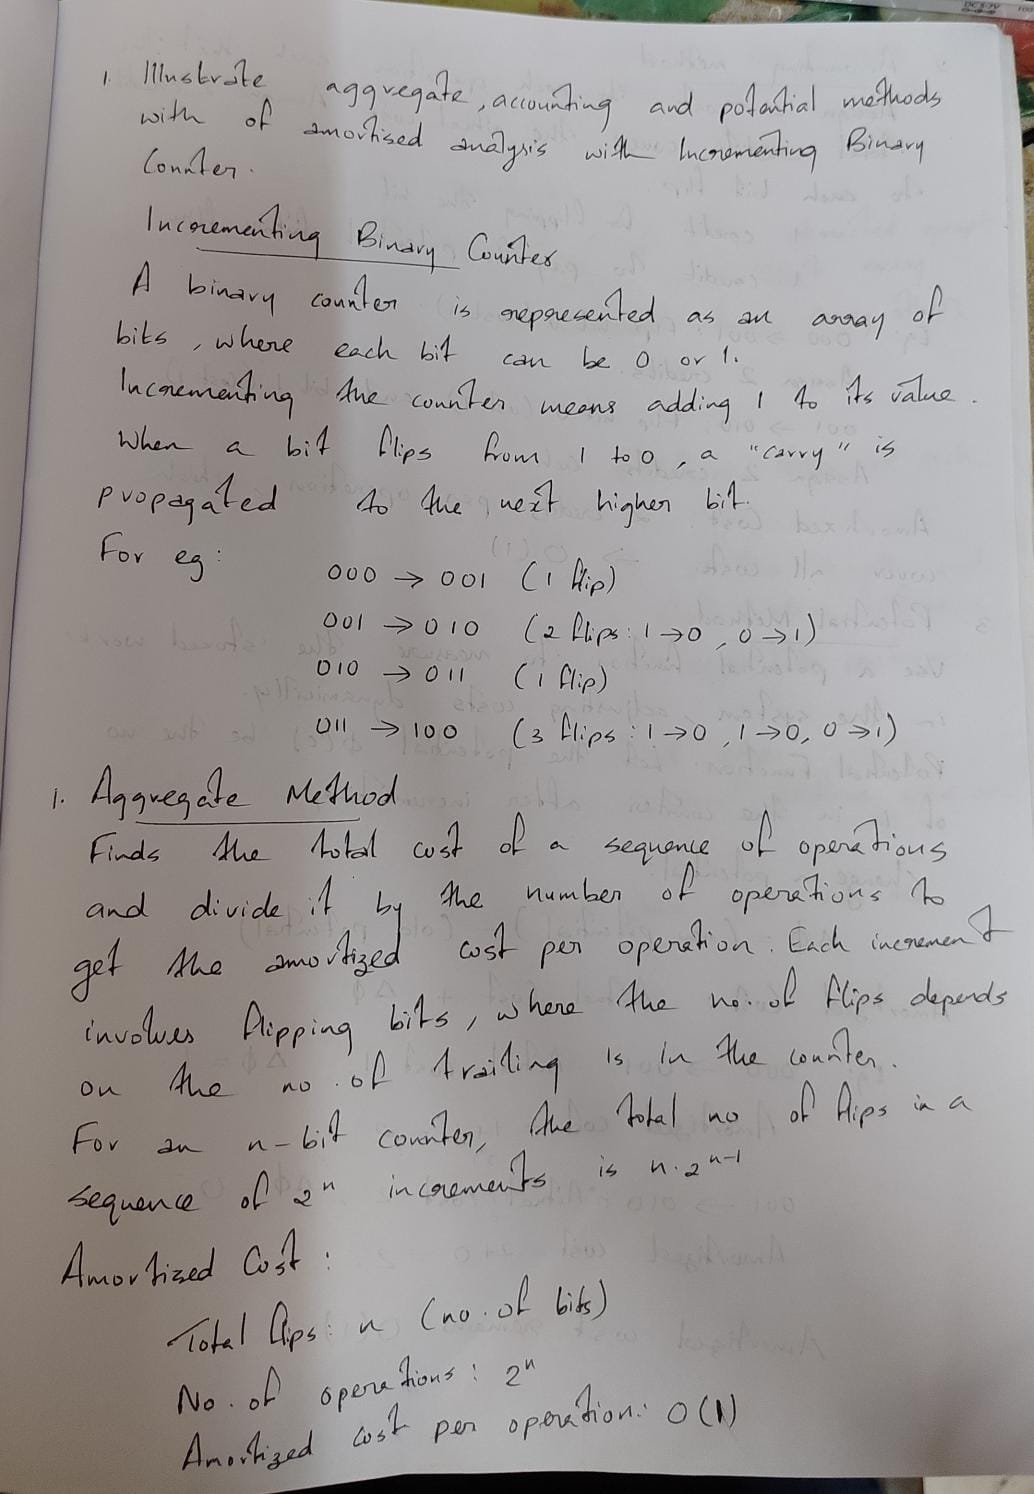 1. Illustrate aggregate, accounting and potential methods
with of amortised analysis with Incrementing Binary
Counter.
Incrementing Binary Counter
A binary counter is represented as an array of
bits, where each bit can be 0 or 1.
Incrementing the counter means adding 1 to its value.
When a bit flips from 1 to 0, a "carry" is
propagated to the next higher bit.
For eg:
000 → 001 (1 flip)
001 → 010 (2 flips: 1→0, 0→1)
010 → 011 (1 flip)
011 → 100 (3 flips: 1→0, 1→0, 0→1)
1. Aggregate Method
Finds the total cost of a sequence of operations
and divide it by the number of operations to
get the amortized cost per operation. Each increment
involves flipping bits, where the no. of flips depends
on the no. of trailing 1s in the counter.
For an n-bit counter, the total no of flips in a
sequence of 2ⁿ increments is n.2ⁿ⁻¹
Amortized Cost:
Total flips: n (no. of bits)
No. of operations: 2ⁿ
Amortized cost per operation: O(1)